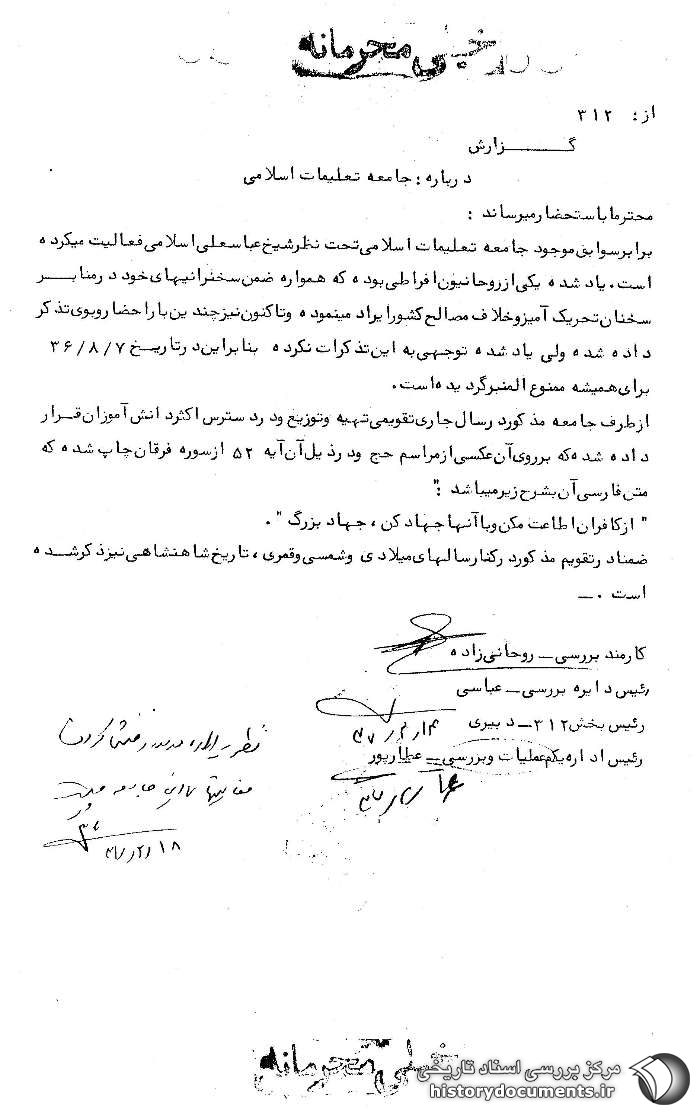 خیلی محرمانه
از: ۳۱۲
گزارش
درباره: جامعه تعلیمات اسلامی
محترما باستحضار میرساند:
برابر سوابق موجود جامعه تعلیمات اسلامی تحت نظر شیخ عباسعلی اسلامی فعالیت میکرده
است. یاد شده یکی از روحانیون افراطی بوده که همواره ضمن سخنرانیهای خود در منابر
سخنان تحریک آمیز و خلاف مصالح کشور ایراد مینموده و تاکنون نیز چندین بار احضار و بوی تذکر
داده شده ولی یاد شده توجهی به این تذکرات نکرده بنابراین در تاریخ ۳۶/۸/۷
برای همیشه ممنوع المنبر گردیده است.
از طرف جامعه مذکور در سال جاری تقویمی تهیه و توزیع و در دسترس اکثر دانش آموزان قرار
داده شده که بر روی آن عکسی از مراسم حج و در ذیل آن آیه ۵۲ از سوره فرقان چاپ شده که
متن فارسی آن بشرح زیر میباشد:"
"از کافران اطاعت مکن و با آنها جهاد کن، جهاد بزرگ".
ضمنا در تقویم مذکور در کنار سالهای میلادی و شمسی و قمری، تاریخ شاهنشاهی نیز ذکر شده
است.ـ
کارمند بررسی ـ روحانی زاده
رئیس دایره بررسی ـ عباسی
رئیس بخش ۳۱۲ ـ دبیری
رئیس اداره یکم عملیات و بررسی ـ عطارپور
خیلی محرمانه
مرکز بررسی اسناد تاریخی
historydocuments.ir